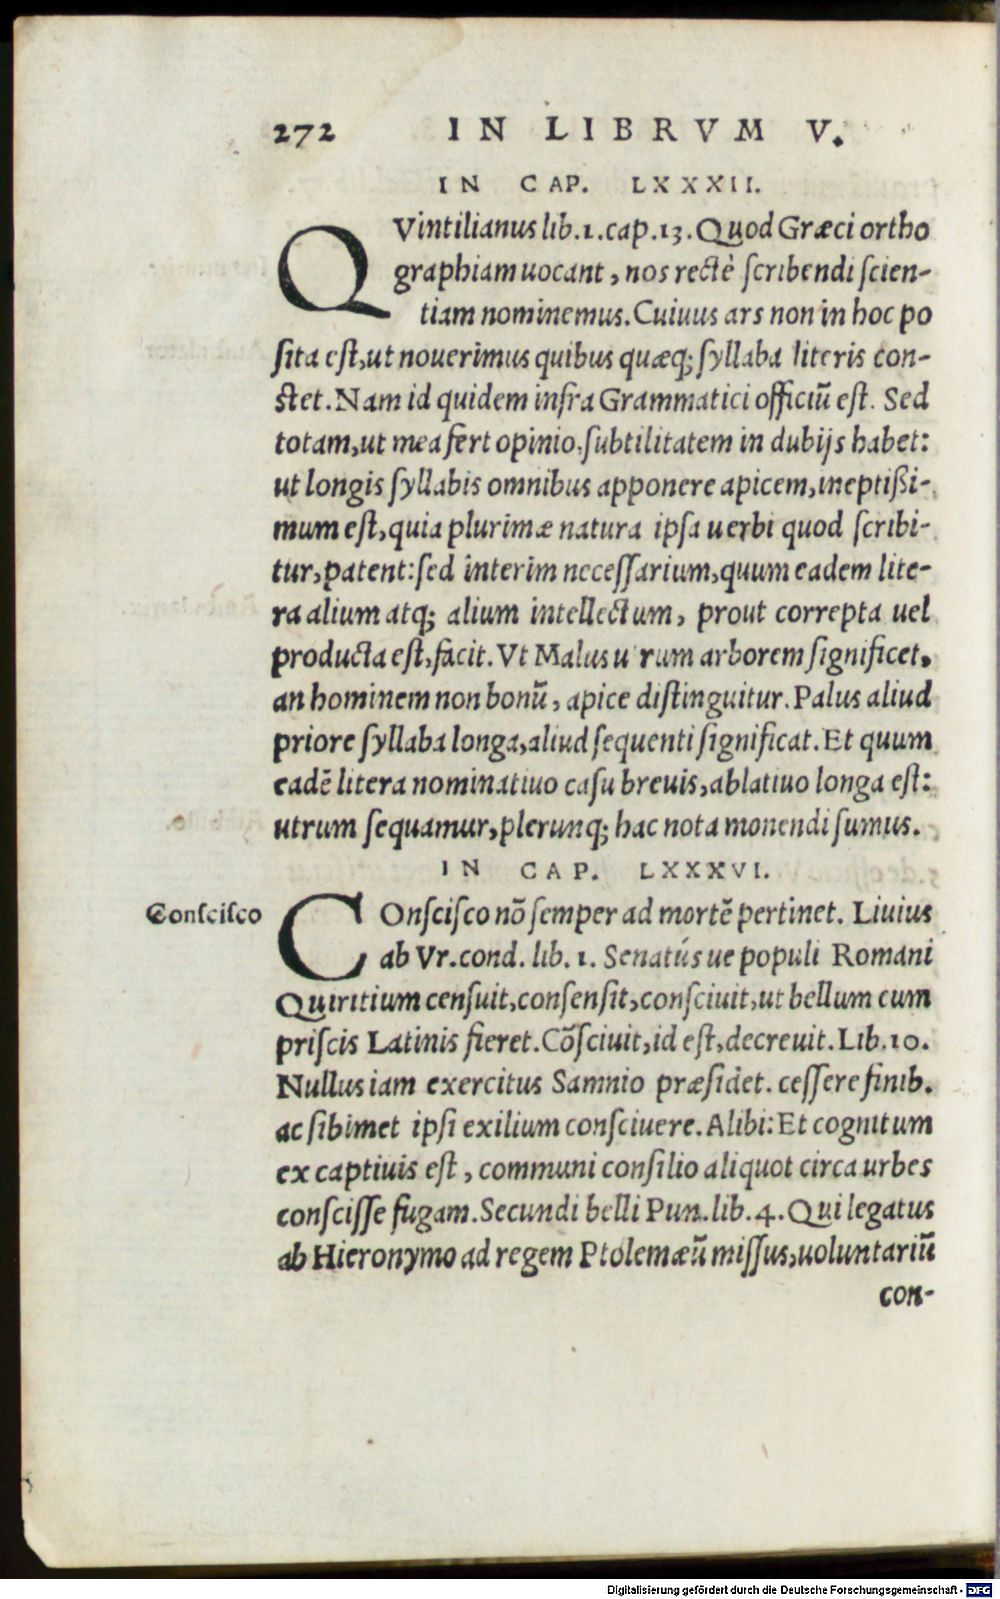 272 IN LIBRVM V.
IN CAP. LXXXII.
QVintilianus lib.1.cap.13.Quod Græci ortho
graphiam uocant, nos rectè ſcribendi ſcien-
tiam nominemus.Cuiuus ars non in hoc po
ſita eſt,ut nouerimus quibus quæq; ſyllaba literis con-
ſtet.Nam id quidem infra Grammatici officiũ eſt. Sed
totam,ut mea fert opinio,ſubtilitatem in dubijs habet:
ut longis ſyllabis omnibus apponere apicem,ineptißi-
mum eſt,quia plurimæ natura ipſa uerbi quod ſcribi-
tur,patent:ſed interim neceſſarium,quum eadem lite-
ra alium atq; alium intellectum, prout correpta uel
producta eſt,facit.Vt Malus u rum arborem ſignificet,
an hominem non bonũ, apice diſtinguitur.Palus aliud
priore ſyllaba longa,aliud ſequenti ſignificat.Et quum
eadẽ litera nominatiuo caſu breuis,ablatiuo longa eſt:
utrum ſequamur,plerunq; hac nota monendi ſumus.
IN CAP. LXXXVI.
Conſciſco
COnſciſco nõ ſemper ad mortẽ pertinet. Liuius
ab Vr.cond. lib. 1. Senatúsue populi Romani
Quiritium cenſuit,conſenſit,conſciuit,ut bellum cum
priſcis Latinis fieret.Cõſciuit,id eſt,decreuit.Lib.10.
Nullus iam exercitus Samnio præſidet. ceſſere finib.
ac ſibimet ipſi exilium conſciuere.Alibi:Et cognitum
ex captiuis eſt, communi conſilio aliquot circa urbes
conſciſſe fugam.Secundi belli Pun.lib.4.Qui legatus
ab Hieronymo ad regem Ptolemæũ miſſus,uoluntariũ
con-
Digitalisierung gefördert durch die Deutsche Forschungsgemeinschaft - DFG